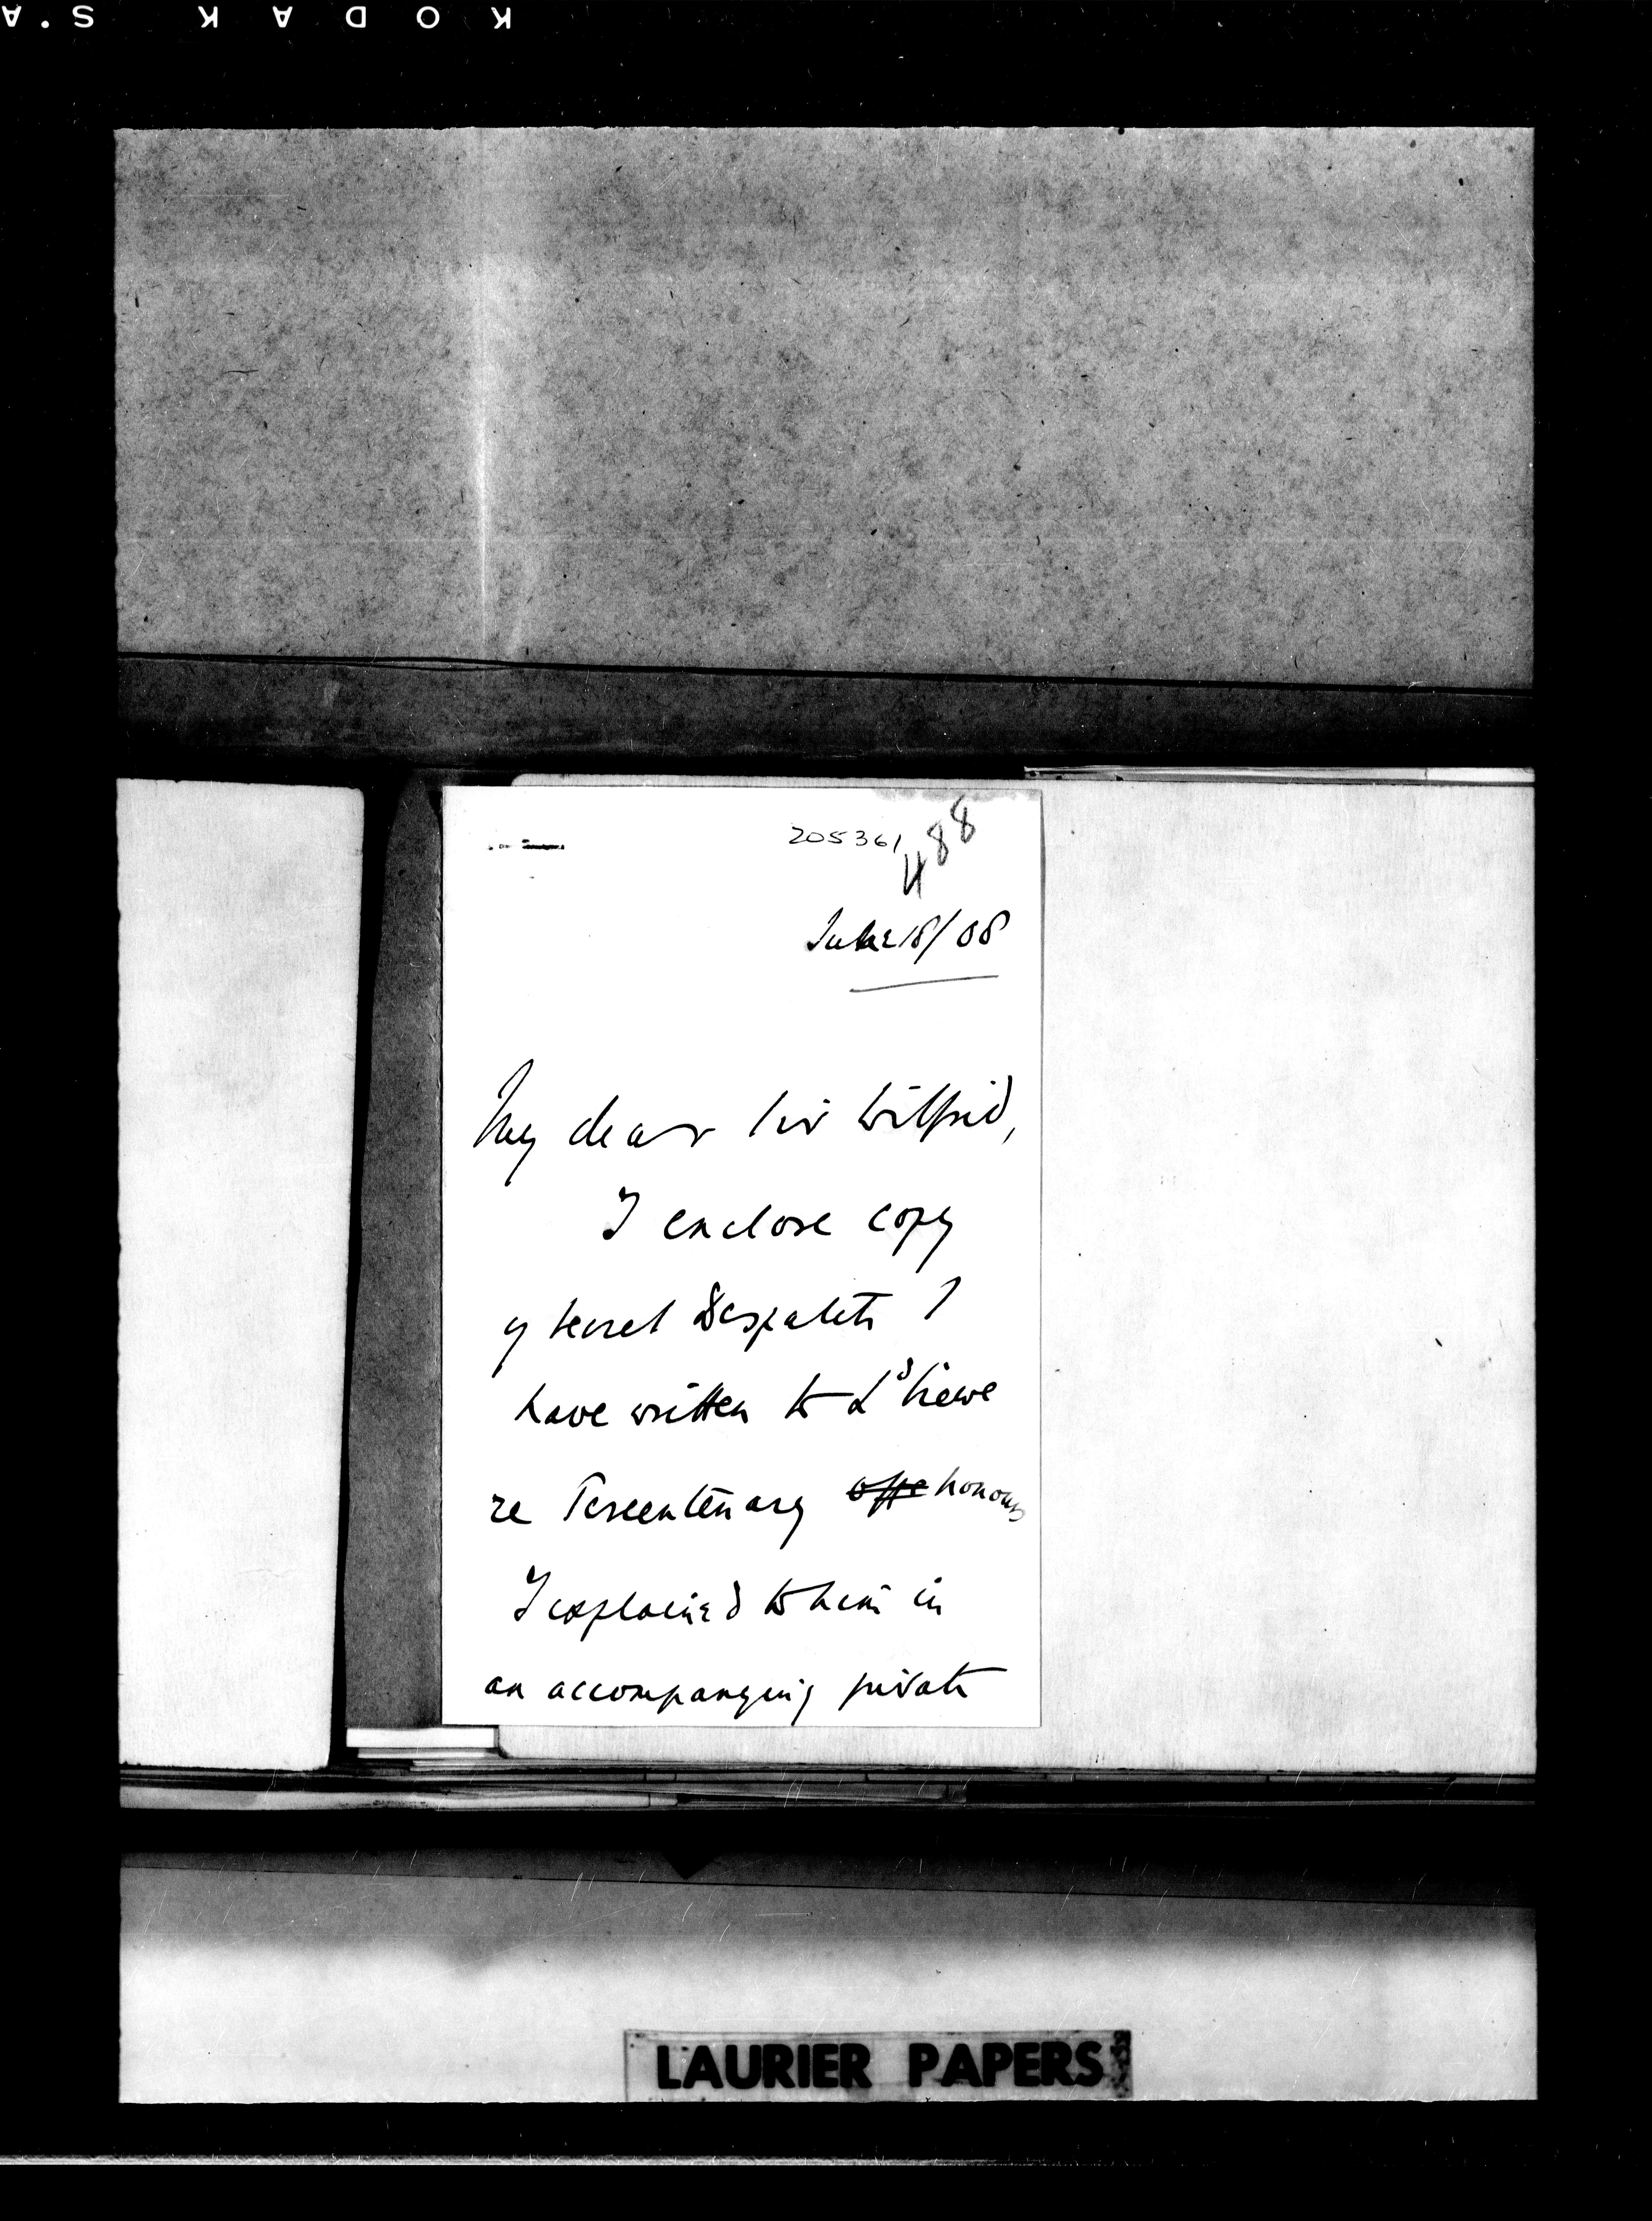 KODAK S.A
205361
488
June 18/08
My dear Sir Wilfrid,
I enclose copy
of secret Despatch I
have written to Ld Crewe
re Tercentenary offe honours
I explained to him in
an accompanying private
LAURIER PAPERS